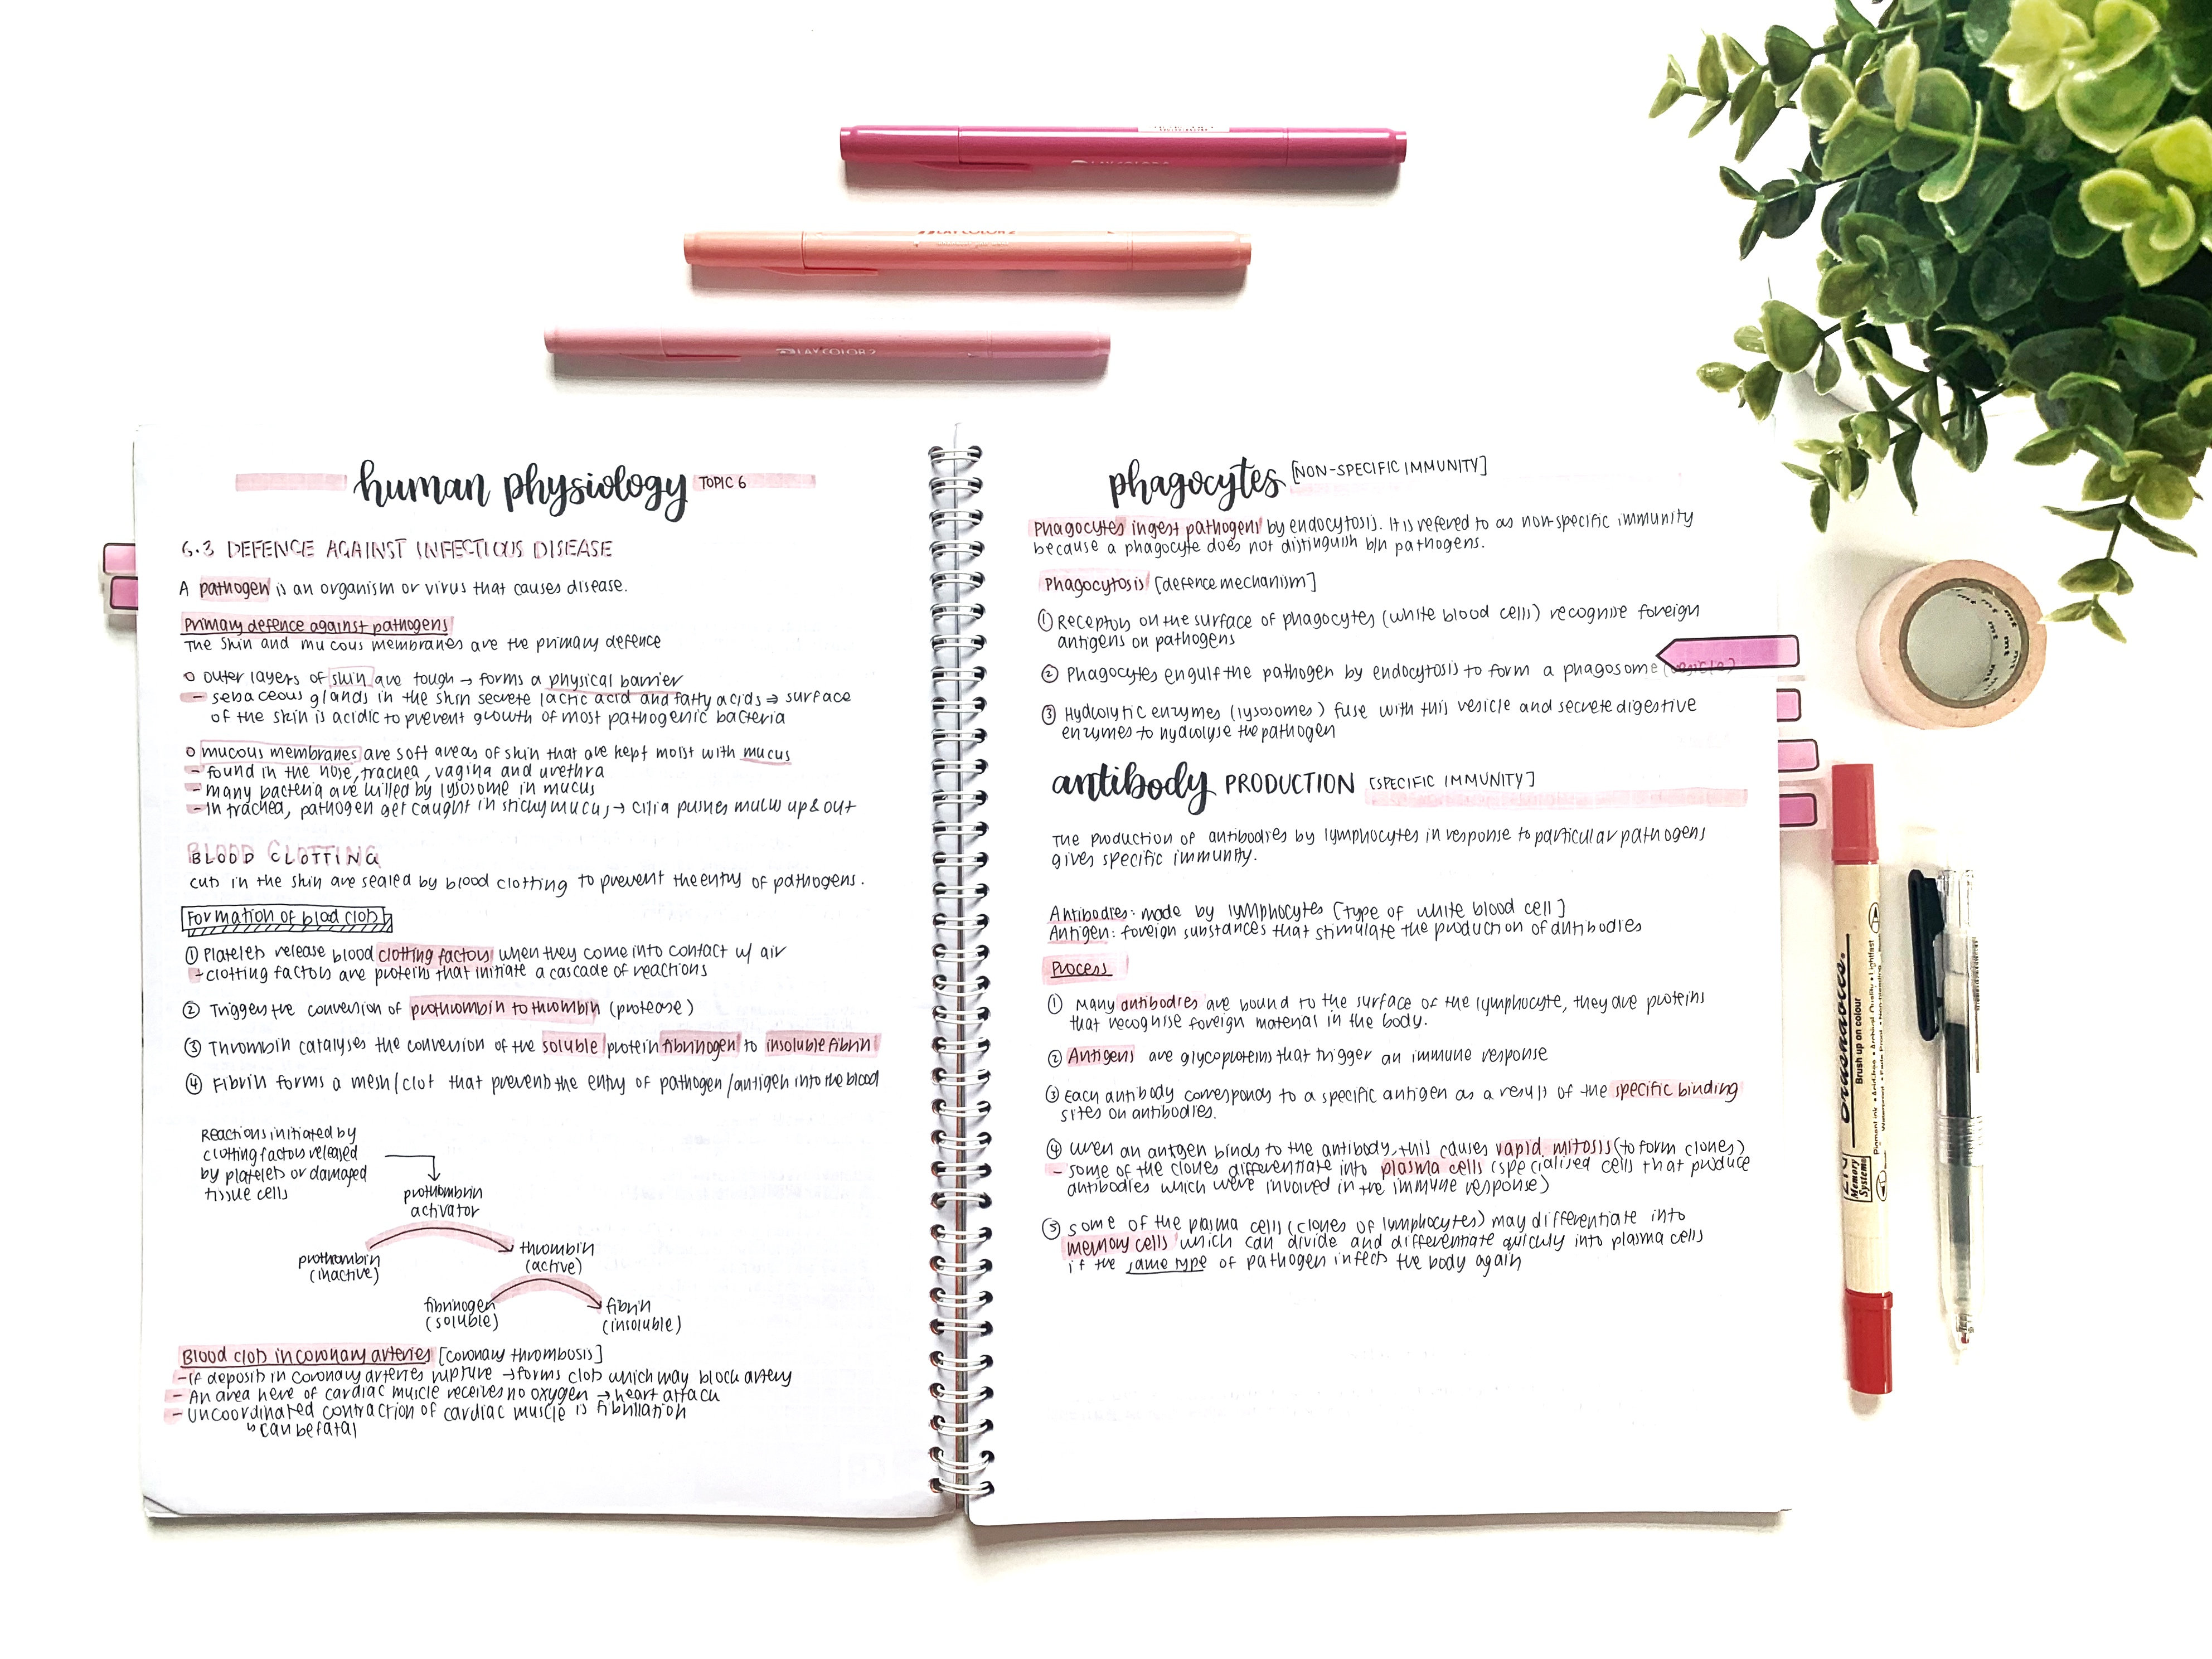 PLAY COLOR 2
LAY COLOR 2
human physiology TOPIC 6
6.3 DEFENCE AGAINST INFECTIOUS DISEASE
A pathogen is an organism or virus that causes disease.
Primary defence against pathogens
The skin and mucous membranes are the primary defence
o outer layers of skin are tough → forms a physical barrier
- sebaceous glands in the skin secrete lactic acid and fatty acids ⇒ surface
of the skin is acidic to prevent growth of most pathogenic bacteria
o mucous membranes are soft areas of skin that are kept moist with mucus
- found in the nose, trachea, vagina and urethra
- many bacteria are killed by lysosome in mucus
- In trachea, pathogen get caught in sticky mucus → cilia pushes mucus up & out
BLOOD CLOTTING
cuts in the skin are sealed by blood clotting to prevent the entry of pathogens.
Formation of blood clots
① Platelets release blood clotting factors when they come into contact w/ air
→ clotting factors are proteins that initiate a cascade of reactions
② Triggers the conversion of prothrombin to thrombin (protease)
③ Thrombin catalyses the conversion of the soluble protein fibrinogen to insoluble fibrin
④ Fibrin forms a mesh/clot that prevents the entry of pathogen/antigen into the blood
Reactions initiated by
clotting factors released
by platelets or damaged
tissue cells
prothrombin
activator
prothrombin
(inactive)
thrombin
(active)
fibrinogen
(soluble)
fibrin
(insoluble)
Blood clots in coronary arteries [coronary thrombosis]
- If deposits in coronary arteries rupture → forms clots which may block artery
- An area here of cardiac muscle receives no oxygen → heart attack
- Uncoordinated contraction of cardiac muscle is fibrillation
↳ can be fatal
phagocytes [NON-SPECIFIC IMMUNITY]
Phagocytes ingest pathogens by endocytosis. It is refered to as non-specific immunity
because a phagocyte does not distinguish b/n pathogens.
Phagocytosis [defence mechanism]
① Receptors on the surface of phagocytes (white blood cells) recognise foreign
antigens on pathogens
② Phagocytes engulf the pathogen by endocytosis to form a phagosome (vesicle)
③ Hydrolytic enzymes (lysosomes) fuse with this vesicle and secrete digestive
enzymes to hydrolyse the pathogen
antibody PRODUCTION [SPECIFIC IMMUNITY]
The production of antibodies by lymphocytes in response to particular pathogens
gives specific immunity.
Antibodies: made by lymphocytes [type of white blood cell]
Antigen: foreign substances that stimulate the production of antibodies
Process
① Many antibodies are bound to the surface of the lymphocyte, they are proteins
that recognise foreign material in the body.
② Antigens are glycoproteins that trigger an immune response
③ Each antibody corresponds to a specific antigen as a result of the specific binding
sites on antibodies.
④ When an antigen binds to the antibody, this causes rapid mitosis (to form clones)
- some of the clones differentiate into plasma cells (specialised cells that produce
antibodies which were involved in the immune response)
⑤ some of the plasma cells (clones of lymphocytes) may differentiate into
memory cells which can divide and differentiate quickly into plasma cells
if the same type of pathogen infects the body again
Brushables.
Brush up on colour
ZIG
Memory
Systems